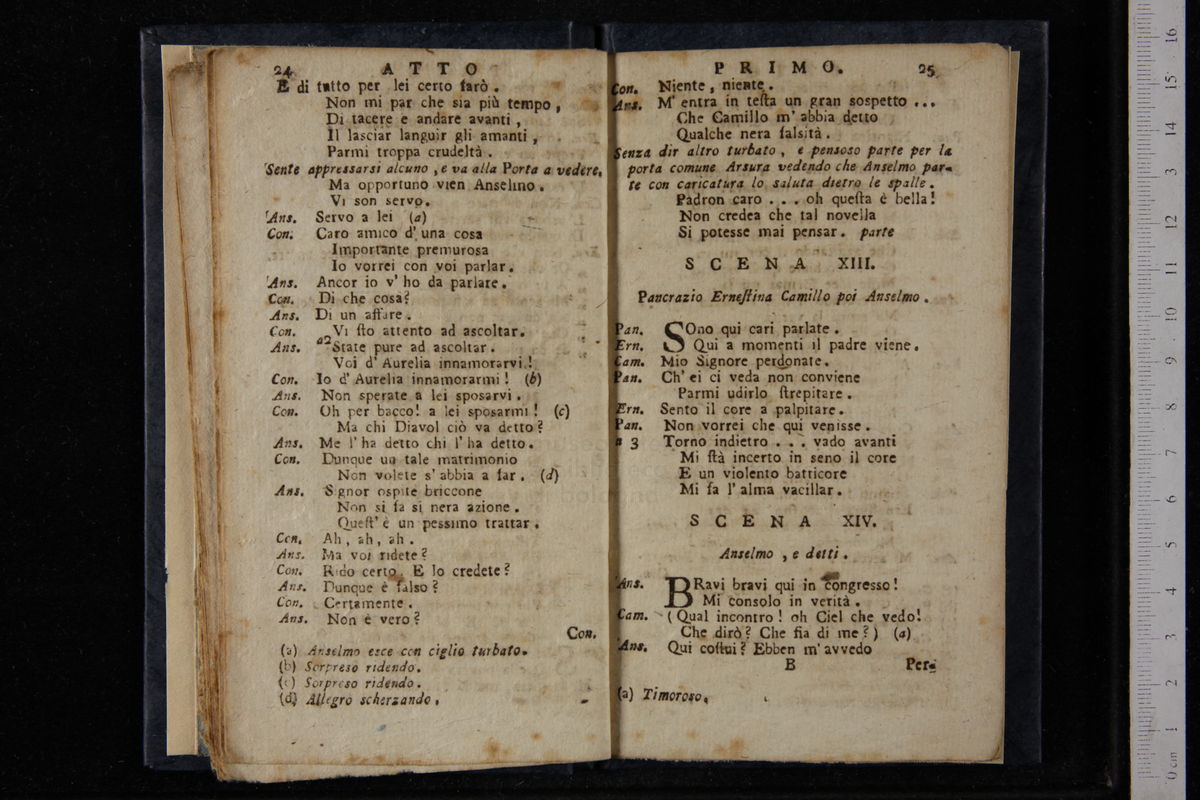 24 ATTO
E di tutto per lei certo farò.
Non mi par che sia più tempo,
Di tacere e andare avanti,
Il lasciar languir gli amanti,
Parmi troppa crudeltà.
Sente appressarsi alcuno, e va alla Porta a vedere.
Ma opportuno vien Anselmo.
Vi son servo.
Ans. Servo a lei (a)
Con. Caro amico d' una cosa
Importante premurosa
Io vorrei con voi parlar.
Ans. Ancor io v' ho da parlare.
Con. Di che cosa?
Ans. Di un affare.
Con. Vi sto attento ad ascoltar.
Ans. a2 State pure ad ascoltar.
Voi d' Aurelia innamorarvi!
Con. Io d' Aurelia innamorarmi! (b)
Ans. Non sperate a lei sposarvi.
Con. Oh per bacco! a lei sposarmi! (c)
Ma chi Diavol ciò va detto?
Ans. Me l' ha detto chi l' ha detto.
Con. Dunque un tale matrimonio
Non volete s' abbia a far. (d)
Ans. Signor ospite briccone
Non si fa si nera azione.
Quest' è un pessimo trattar.
Con. Ah, ah, ah.
Ans. Ma voi ridete?
Con. Rido certo. E lo credete?
Ans. Dunque è falso?
Con. Certamente.
Ans. Non è vero?
Con.
(a) Anselmo esce con ciglio turbato.
(b) Sorpreso ridendo.
(c) Sorpreso ridendo.
(d) Allegro scherzando.
PRIMO. 25
Con. Niente, niente.
Ans. M' entra in testa un gran sospetto ...
Che Camillo m' abbia detto
Qualche nera falsità.
Senza dir altro turbato, e pensoso parte per la
porta comune Arsura vedendo che Anselmo par-
te con caricatura lo saluta dietro le spalle.
Padron caro ... oh questa è bella!
Non credea che tal novella
Si potesse mai pensar. parte
SCENA XIII.
Pancrazio Ernestina Camillo poi Anselmo.
Pan. SOno qui cari parlate.
Ern. Qui a momenti il padre viene.
Cam. Mio Signore perdonate.
Pan. Ch' ei ci veda non conviene
Parmi udirlo strepitare.
Ern. Sento il core a palpitare.
Pan. Non vorrei che qui venisse.
a 3 Torno indietro ... vado avanti
Mi stà incerto in seno il core
E un violento batticore
Mi fa l' alma vacillar.
SCENA XIV.
Anselmo, e detti.
Ans. BRavi bravi qui in congresso!
Mi consolo in verità.
Cam. (Qual incontro! oh Ciel che vedo!
Che dirò? Che fia di me?) (a)
Ans. Qui costui? Ebben m' avvedo
B Per-
(a) Timoroso.